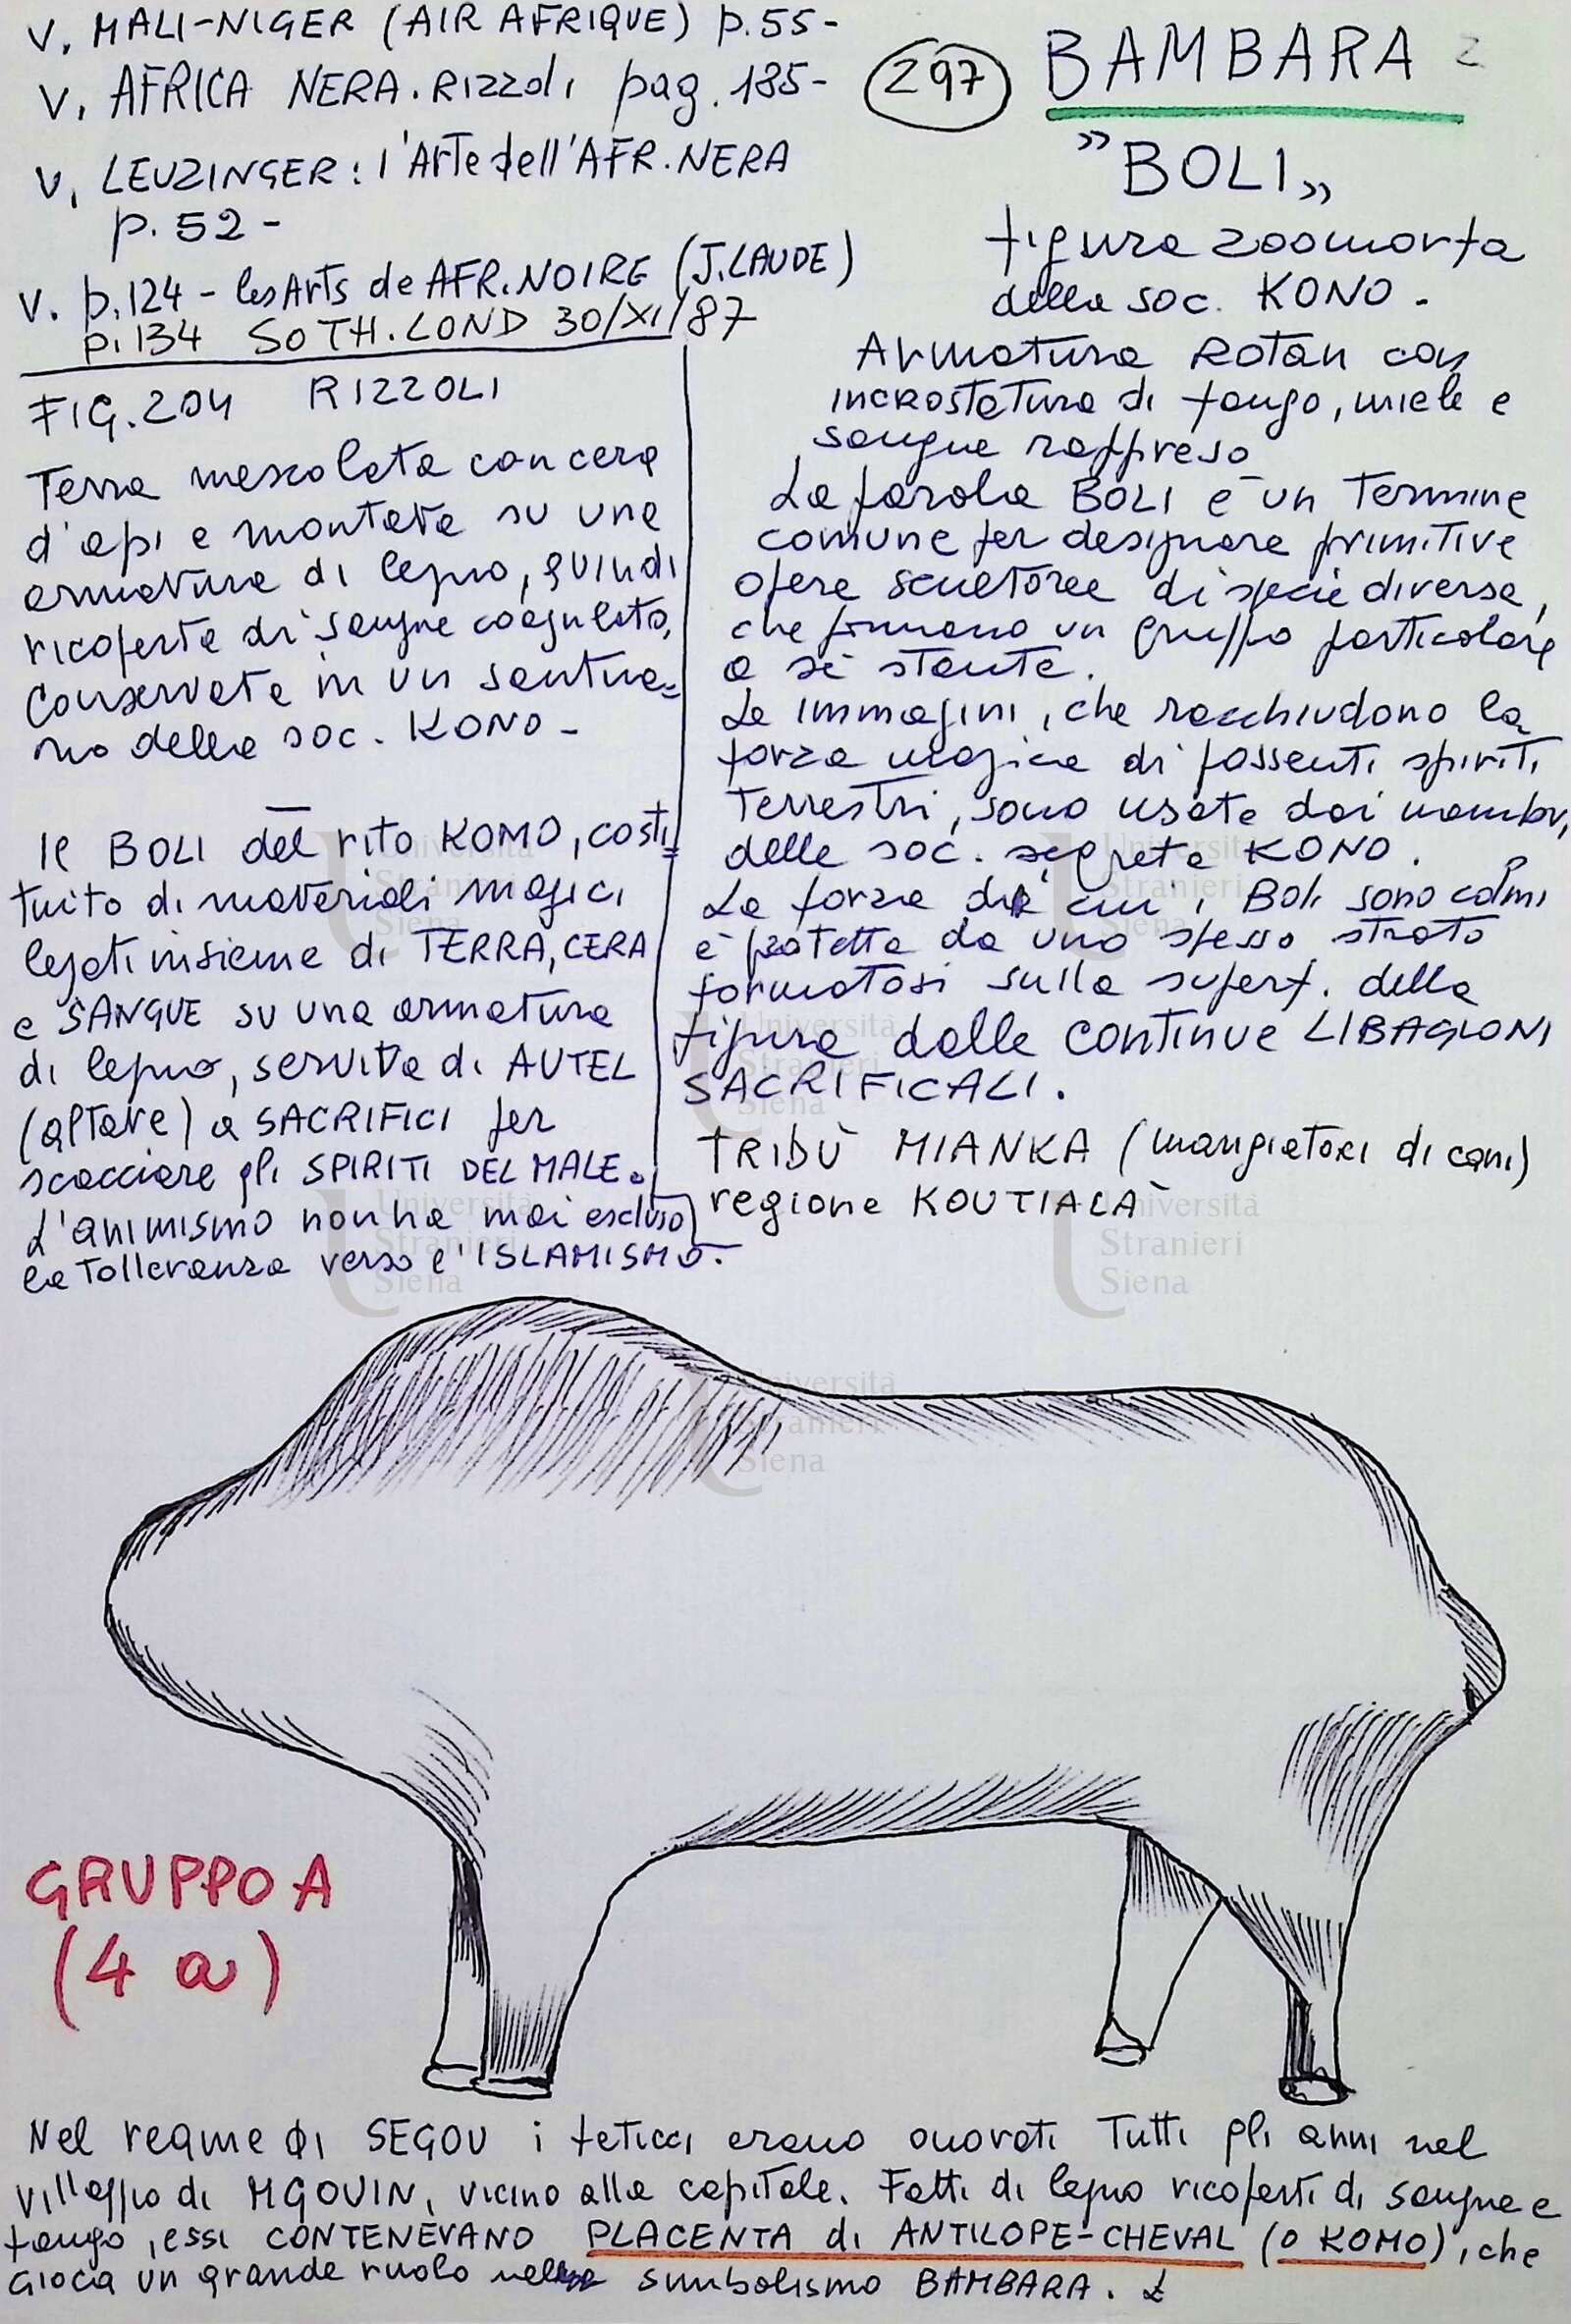 V. MALI-NIGER (AIR AFRIQUE) p.55-
V. AFRICA NERA. Rizzoli pag. 185-
V. LEUZINGER: l'Arte dell'AFR. NERA
p. 52 -
V. p.124 - les Arts de AFR. NOIRE (J. LAUDE)
p. 134 SOTH. LOND 30/XI/87
297
BAMBARA 2
"BOLI"
figura zoomorfa
della soc. KONO -
Armatura Rotan con
incrostatura di fango, miele e
sangue rappreso
La parola BOLI è un termine
comune per designare primitive
opere scultoree di specie diversa,
che formano un gruppo particolare
a sé stante.
Le immagini, che racchiudono la
forza magica di possenti spiriti
terrestri, sono usate dai membri
delle soc. segrete KONO.
La forza di cui i Boli sono colmi
è protetta da uno spesso strato
formatosi sulla superf. della
figura dalle continue LIBAGIONI
SACRIFICALI.
TRIBÙ MIANKA (mangiatori di cani)
regione KOUTIALA
FIG. 204 RIZZOLI
Terra mescolata con cera
d'api e montata su una
armatura di legno, quindi
ricoperta di sangue coagulato,
conservata in un santua=
rio della soc. KONO -
Il BOLI del rito KOMO, costi=
tuito di materiali magici
legati insieme di TERRA, CERA
e SANGUE su una armatura
di legno, serviva di AUTEL
(altare) a SACRIFICI per
scacciare gli SPIRITI DEL MALE.
L'animismo non ha mai escluso
la tolleranza verso l'ISLAMISMO.
GRUPPO A
(4 a)
Nel reame di SEGOU i feticci erano onorati tutti gli anni nel
villaggio di MGOUIN, vicino alla capitale. Fatti di legno ricoperti di sangue e
fango, essi CONTENEVANO PLACENTA di ANTILOPE-CHEVAL (o KOMO), che
gioca un grande ruolo nel simbolismo BAMBARA.
Università
Stranieri
Siena
Università
Stranieri
Siena
Università
Stranieri
Siena
Università
Stranieri
Siena
Università
Stranieri
Siena
Università
Stranieri
Siena